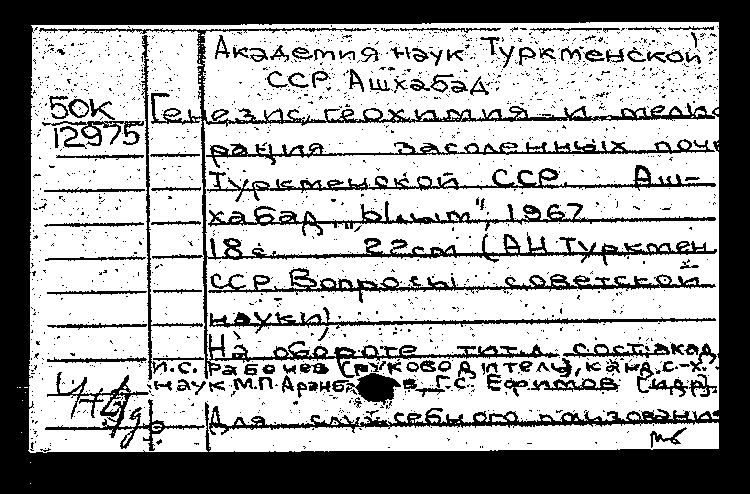 Академия наук Туркменской
ССР. Ашхабад.
50К
12975
Генезис, геохимия и мелио
рация засоленных почв
Туркменской ССР. Аш-
хабад, "Ылым", 1967
18 с. 22см (АН Туркмен.
ССР. Вопросы советской
науки)
На обороте тит.л. сост: акад.
И.С. Рабочев [руководитель], канд. с-х.
наук М.П. Г.С. Ефимов [и др].
Для служебного пользования